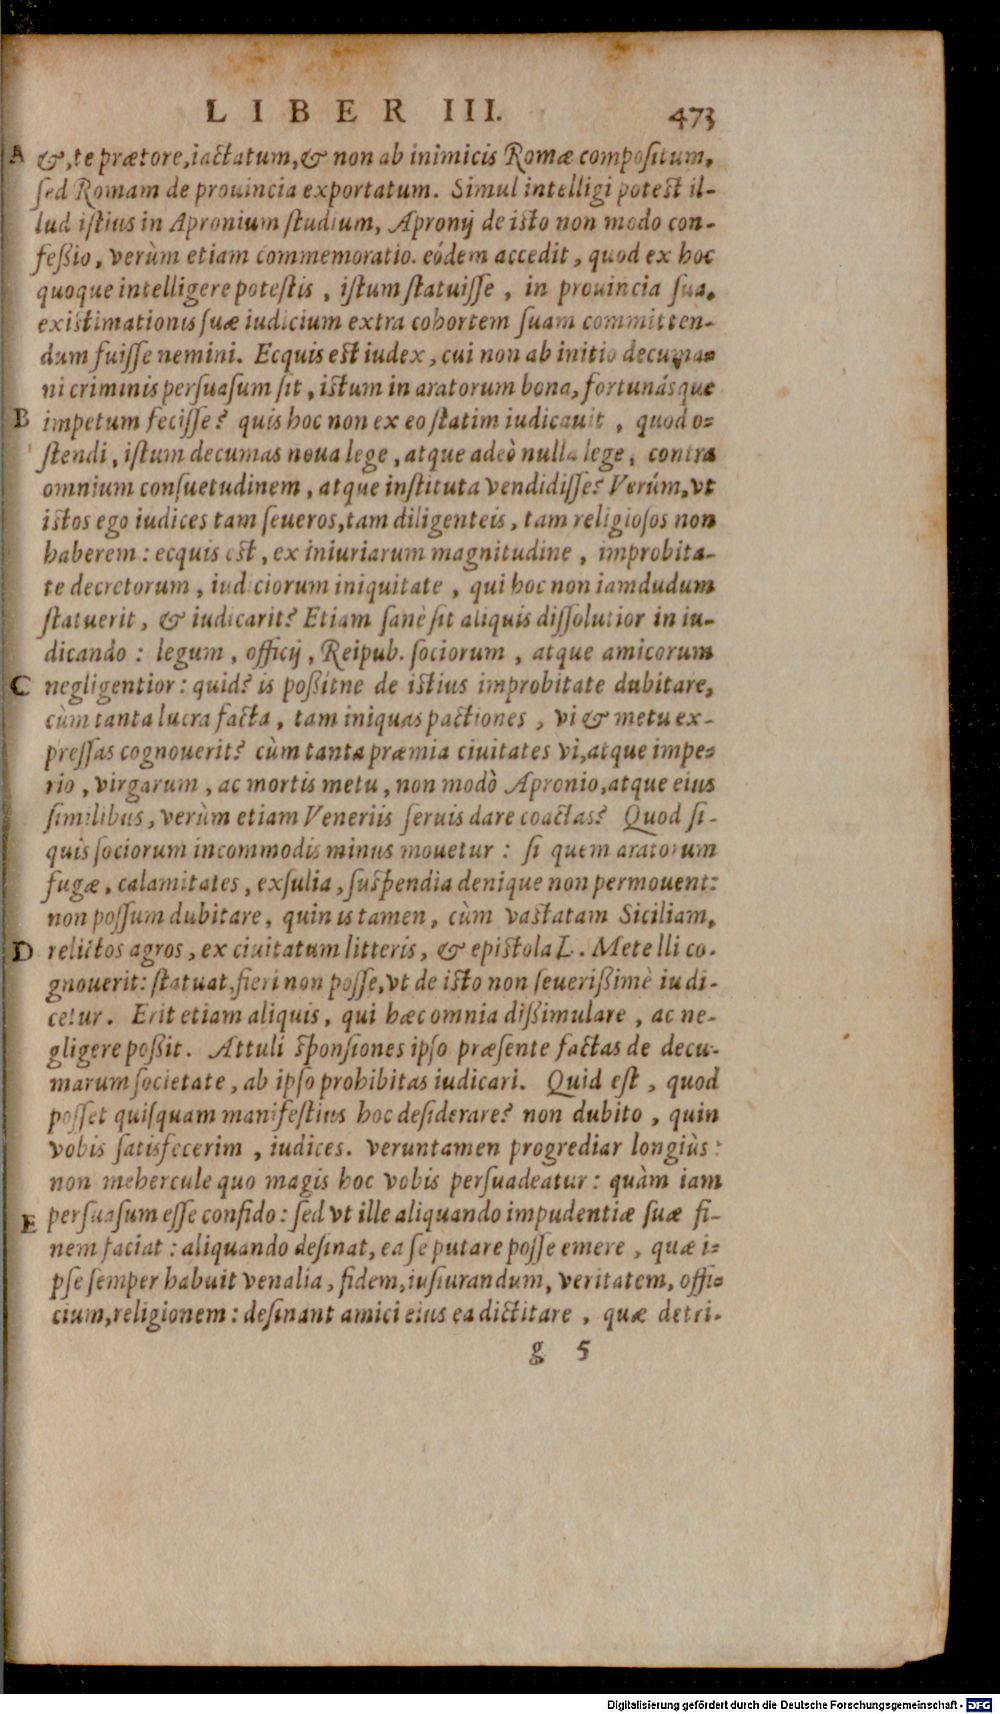 LIBER III. 473
A &, te prætore, iactatum, & non ab inimicis Romæ compositum,
sed Romam de prouincia exportatum. Simul intelligi potest il-
lud istius in Apronium studium, Apronij de isto non modo con-
feßio, verùm etiam commemoratio. eódem accedit, quod ex hoc
quoque intelligere potestis, istum statuisse, in prouincia sua,
existimationis suæ iudicium extra cohortem suam committen-
dum fuisse nemini. Ecquis est iudex, cui non ab initio decuma-
ni criminis persuasum sit, istum in aratorum bona, fortunásque
B impetum fecisse? quis hoc non ex eo statim iudicauit, quod o-
stendi, istum decumas noua lege, atque adeò nulla lege, contra
omnium consuetudinem, atque instituta vendidisse? Verúm, vt
istos ego iudices tam seueros, tam diligenteis, tam religiosos non
haberem: ecquis est, ex iniuriarum magnitudine, improbita-
te decretorum, iudiciorum iniquitate, qui hoc non iamdudum
statuerit, & iudicarit? Etiam sanè sit aliquis dissolutior in iu-
dicando: legum, officij, Reipub. sociorum, atque amicorum
C negligentior: quid? is poßitne de istius improbitate dubitare,
cùm tanta lucra facta, tam iniquas pactiones, vi & metu ex-
pressas cognouerit? cùm tanta præmia ciuitates vi, atque impe-
rio, virgarum, ac mortis metu, non modò Apronio, atque eius
similibus, verùm etiam Veneriis seruis dare coactas? Quod si-
quis sociorum incommodis minus mouetur: si quem aratorum
fugæ, calamitates, exsulia, suspendia denique non permouent:
non possum dubitare, quin is tamen, cùm vastatam Siciliam,
D relictos agros, ex ciuitatum litteris, & epistola L. Metelli co-
gnouerit: statuat, fieri non posse, vt de isto non seuerißimè iudi-
cetur. Erit etiam aliquis, qui hæc omnia dißimulare, ac ne-
gligere poßit. Attuli sponsiones ipso præsente factas de decu-
marum societate, ab ipso prohibitas iudicari. Quid est, quod
posset quisquam manifestius hoc desiderare? non dubito, quin
vobis satisfecerim, iudices. veruntamen progrediar longiùs:
non mehercule quo magis hoc vobis persuadeatur: quàm iam
E persuasum esse confido: sed vt ille aliquando impudentiæ suæ fi-
nem faciat: aliquando desinat, ea se putare posse emere, quæ i-
pse semper habuit venalia, fidem, iusiurandum, veritatem, offi-
cium, religionem: desinant amici eius ea dictitare, quæ detri-
g 5
Digitalisierung gefördert durch die Deutsche Forschungsgemeinschaft - DFG